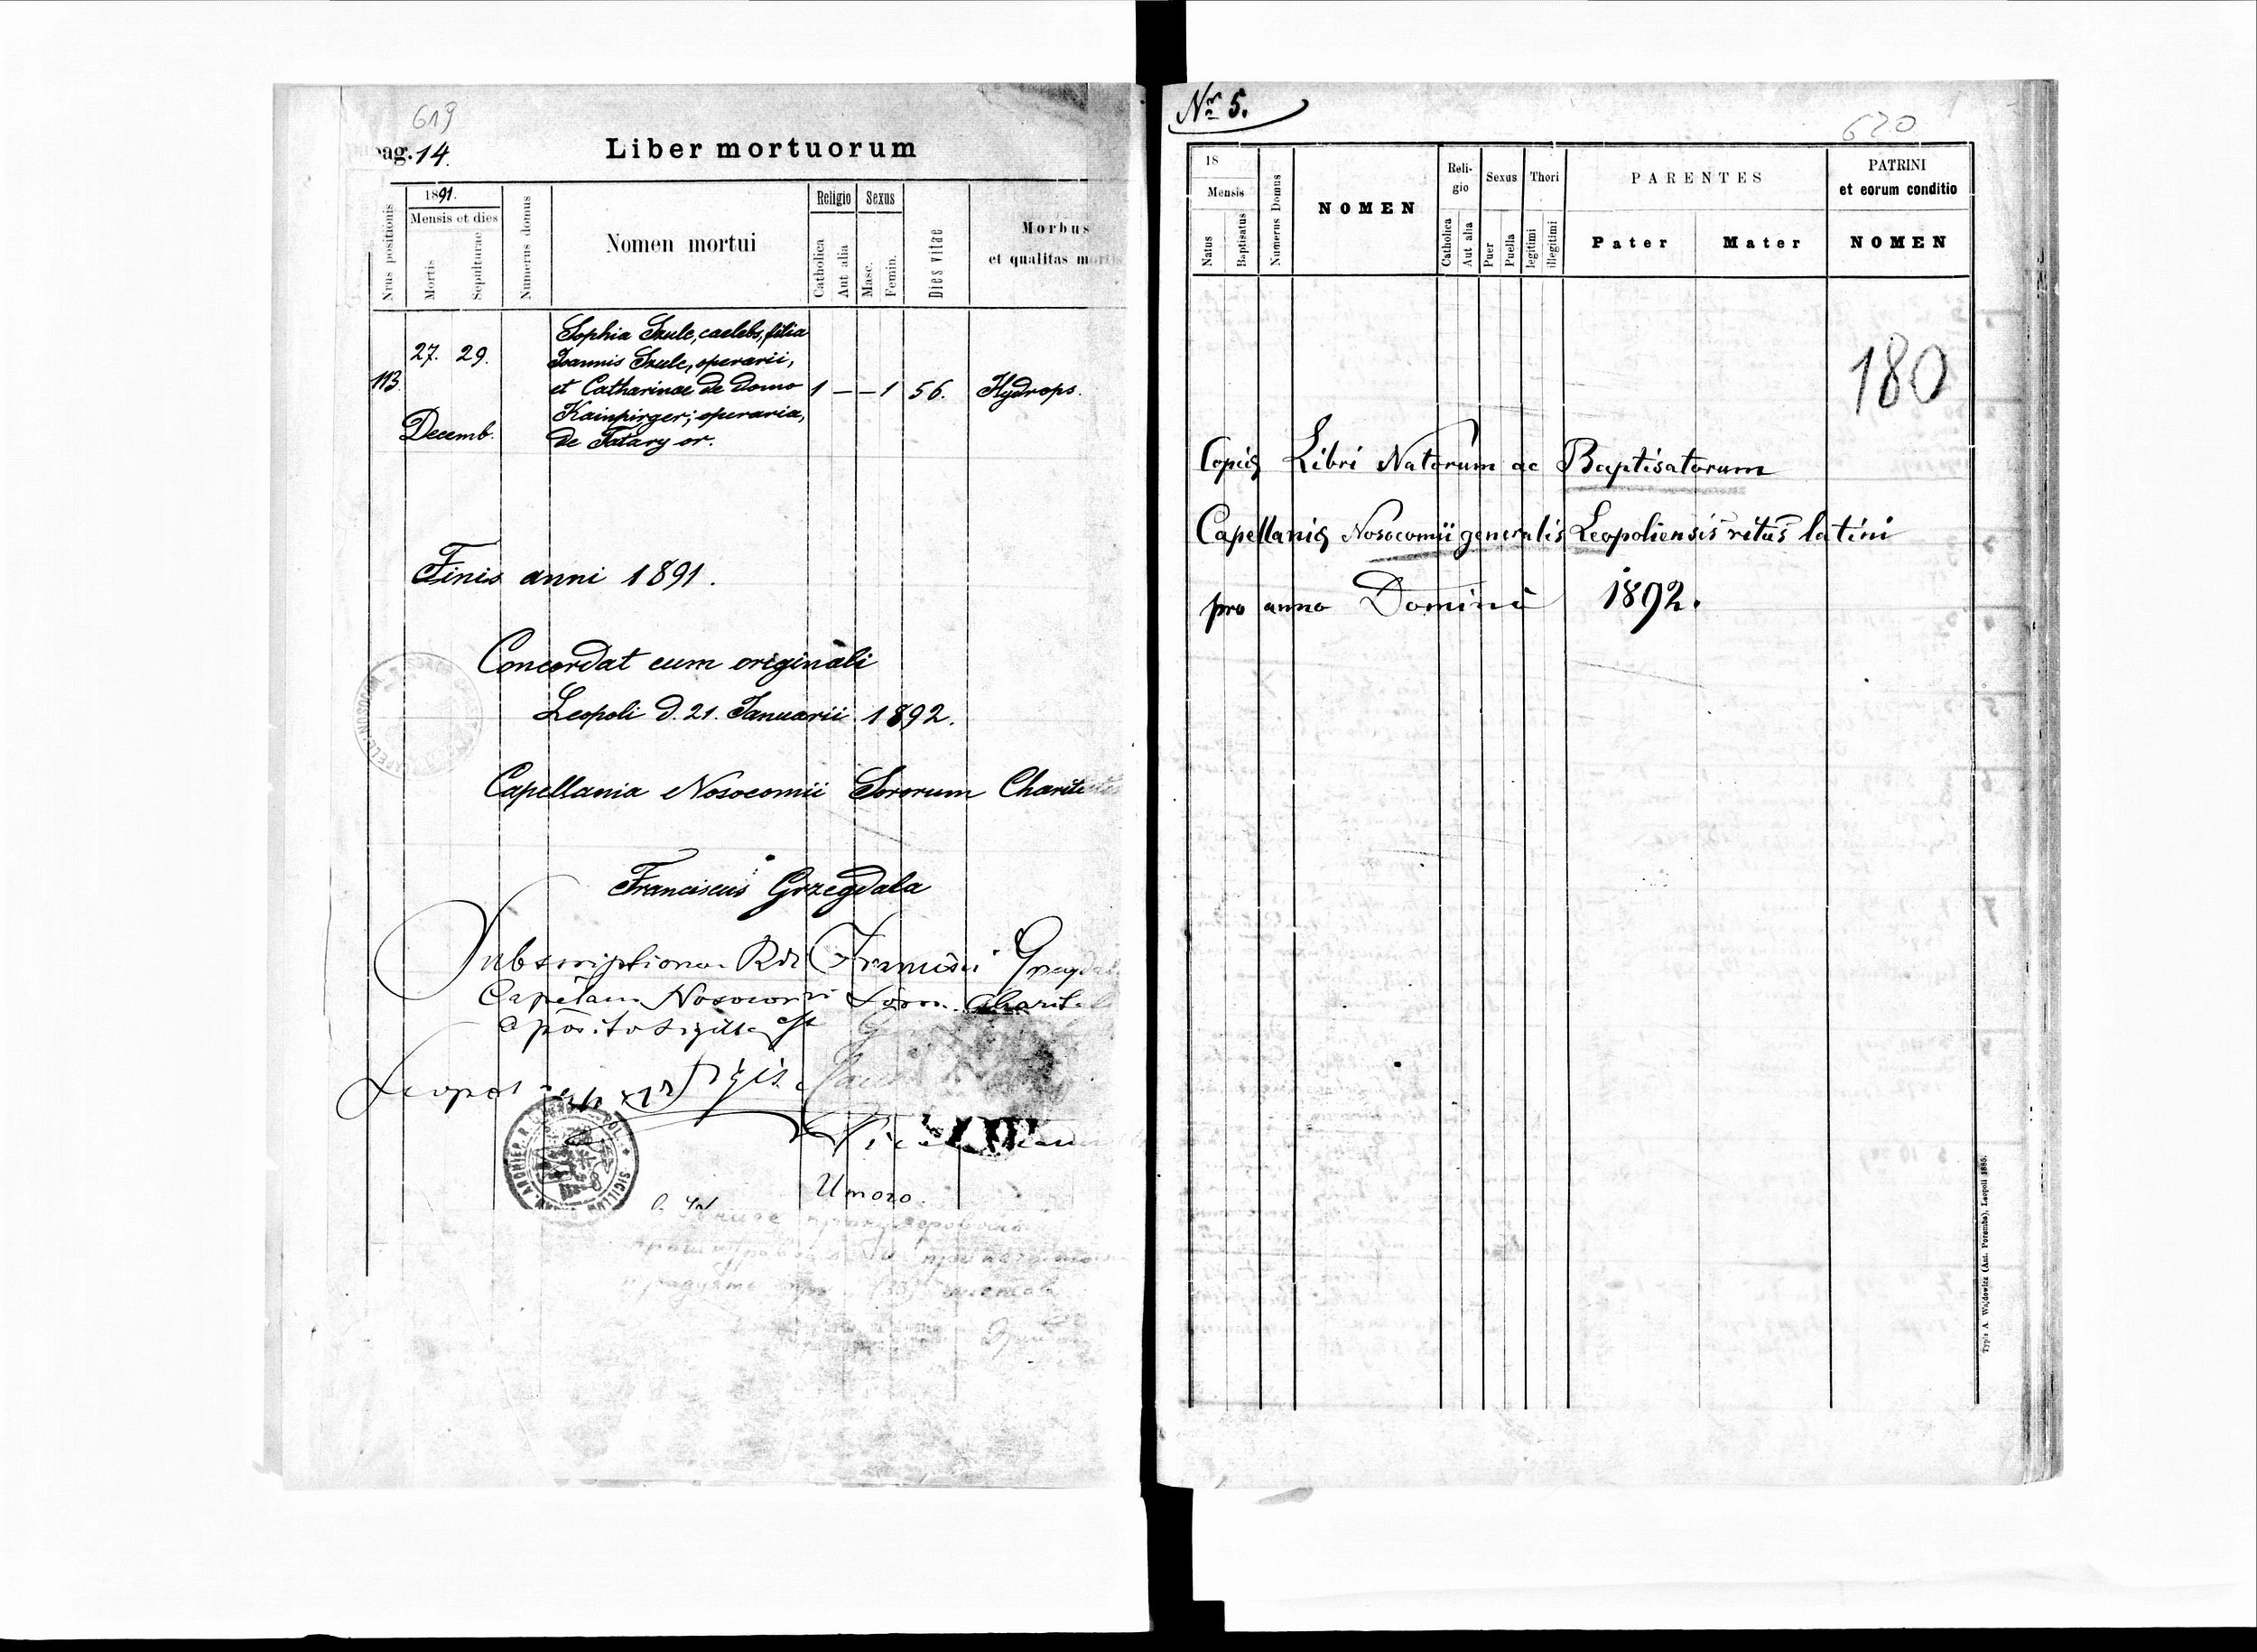 619
pag. 14.
Liber mortuorum
Nrus positionis
1891.
Mensis et dies
Mortis
Sepulturae
Numerus domus
Nomen mortui
Religio
Catholica
Aut alia
Sexus
Masc.
Femin.
Dies vitae
Morbus
et qualitas mortis
113.
27. 29.
Decemb.
Sophia Szulc, caelebs, filia
Joannis Szulc, operarii,
et Catharinae de domo
Kainpirger; operaria,
de Tatary or.
1 — — 1
56.
Hydrops.
Finis anni 1891.
Concordat cum originali
Leopoli d. 21. Januarii 1892.
Capellania Nosocomii Sororum Charitatis
Franciscus Grzegdala
Subscriptionem Rdi Francisci Grzegdala
Nosocomii Charit
aposito sigillo
Umoro.
Nr 5.
620
18
Mensis
Natus
Baptisatus
Numerus Domus
NOMEN
Reli-
gio
Catholica
Aut alia
Sexus
Puer
Puella
Thori
legitimi
illegitimi
PARENTES
Pater
Mater
PATRINI
et eorum conditio
NOMEN
180
Copia Libri Natorum ac Baptisatorum
Capellaniae Nosocomii generalis Leopoliensis ritus latini
pro anno Domini 1892.
Typis A. Wajdowicz (Ant. Poremba), Leopoli 1885.